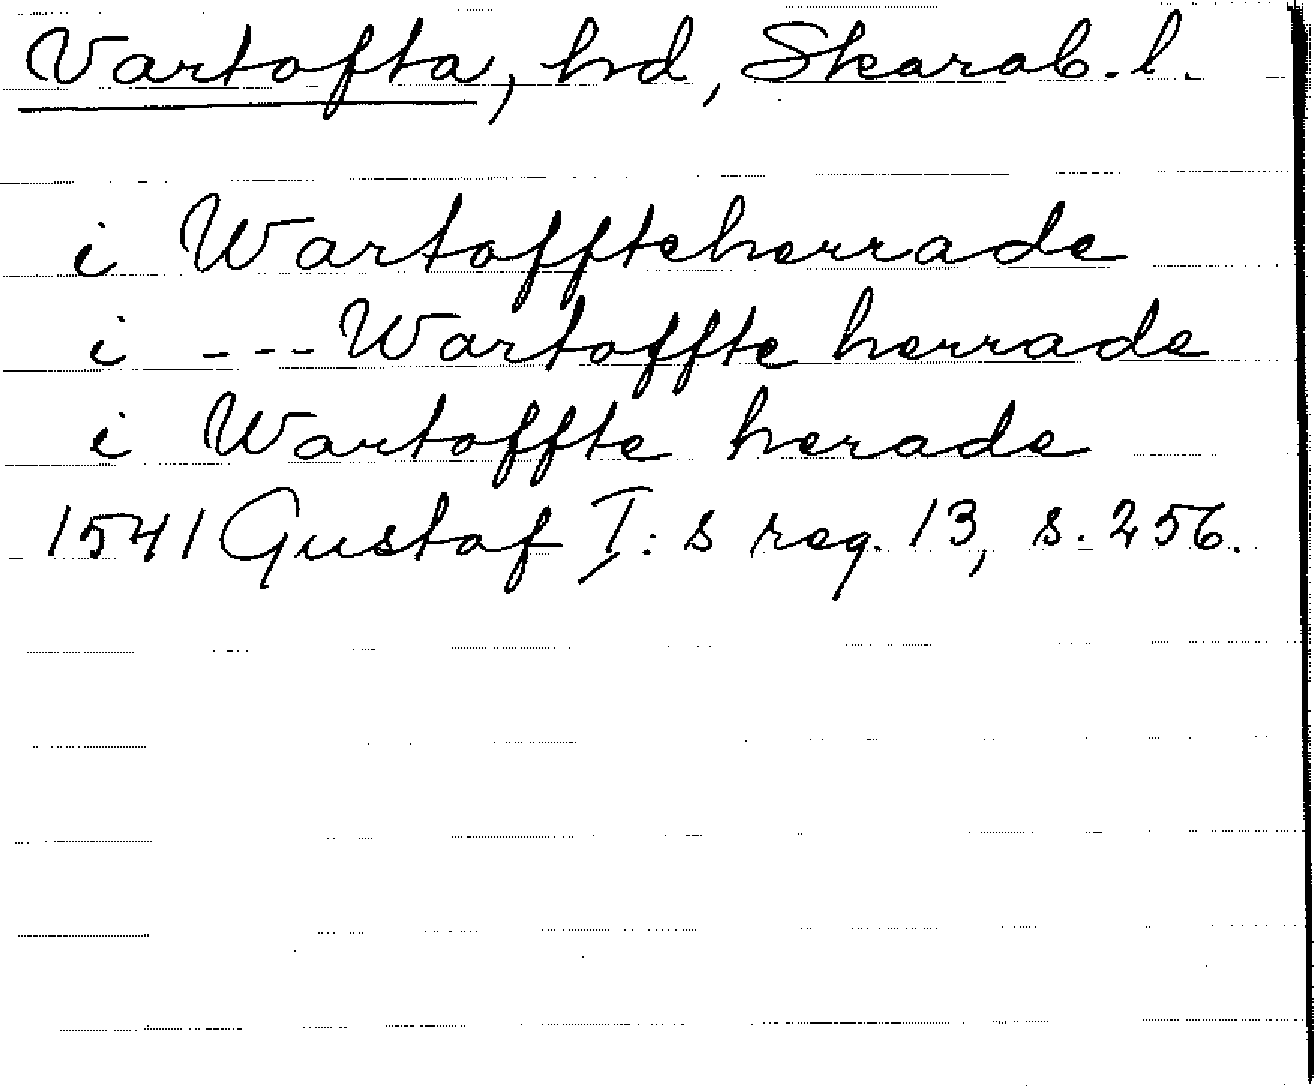 Vartofta, hd, Skarab. l.
i Wartoffteherrade
i --- Wartoffte herrade
i Wartoffte herade
1541 Gustaf I:s reg. 13, s. 256.